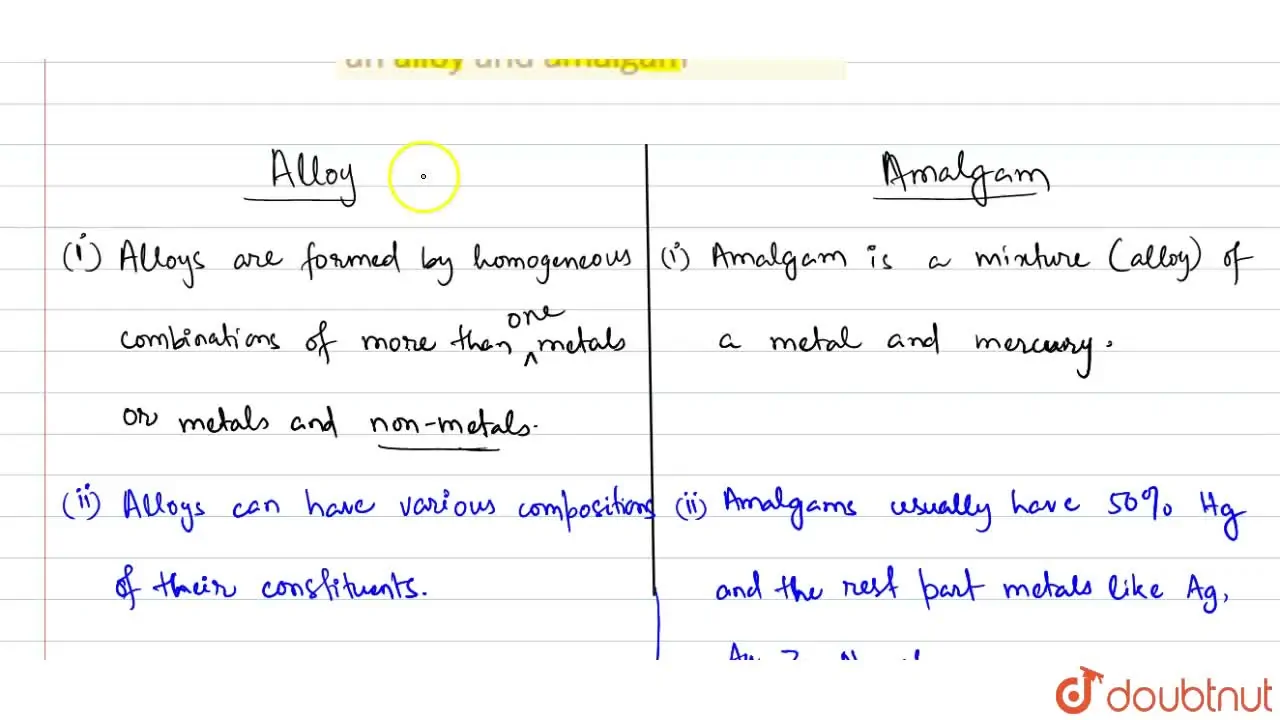 an alloy and amalgam
Alloy
(i) Alloys are formed by homogeneous
combinations of more than one metals
or metals and non-metals.
(ii) Alloys can have various compositions
of their constituents.
Amalgam
(i) Amalgam is a mixture (alloy) of
a metal and mercury.
(ii) Amalgams usually have 50% Hg
and the rest part metals like Ag,
doubtnut